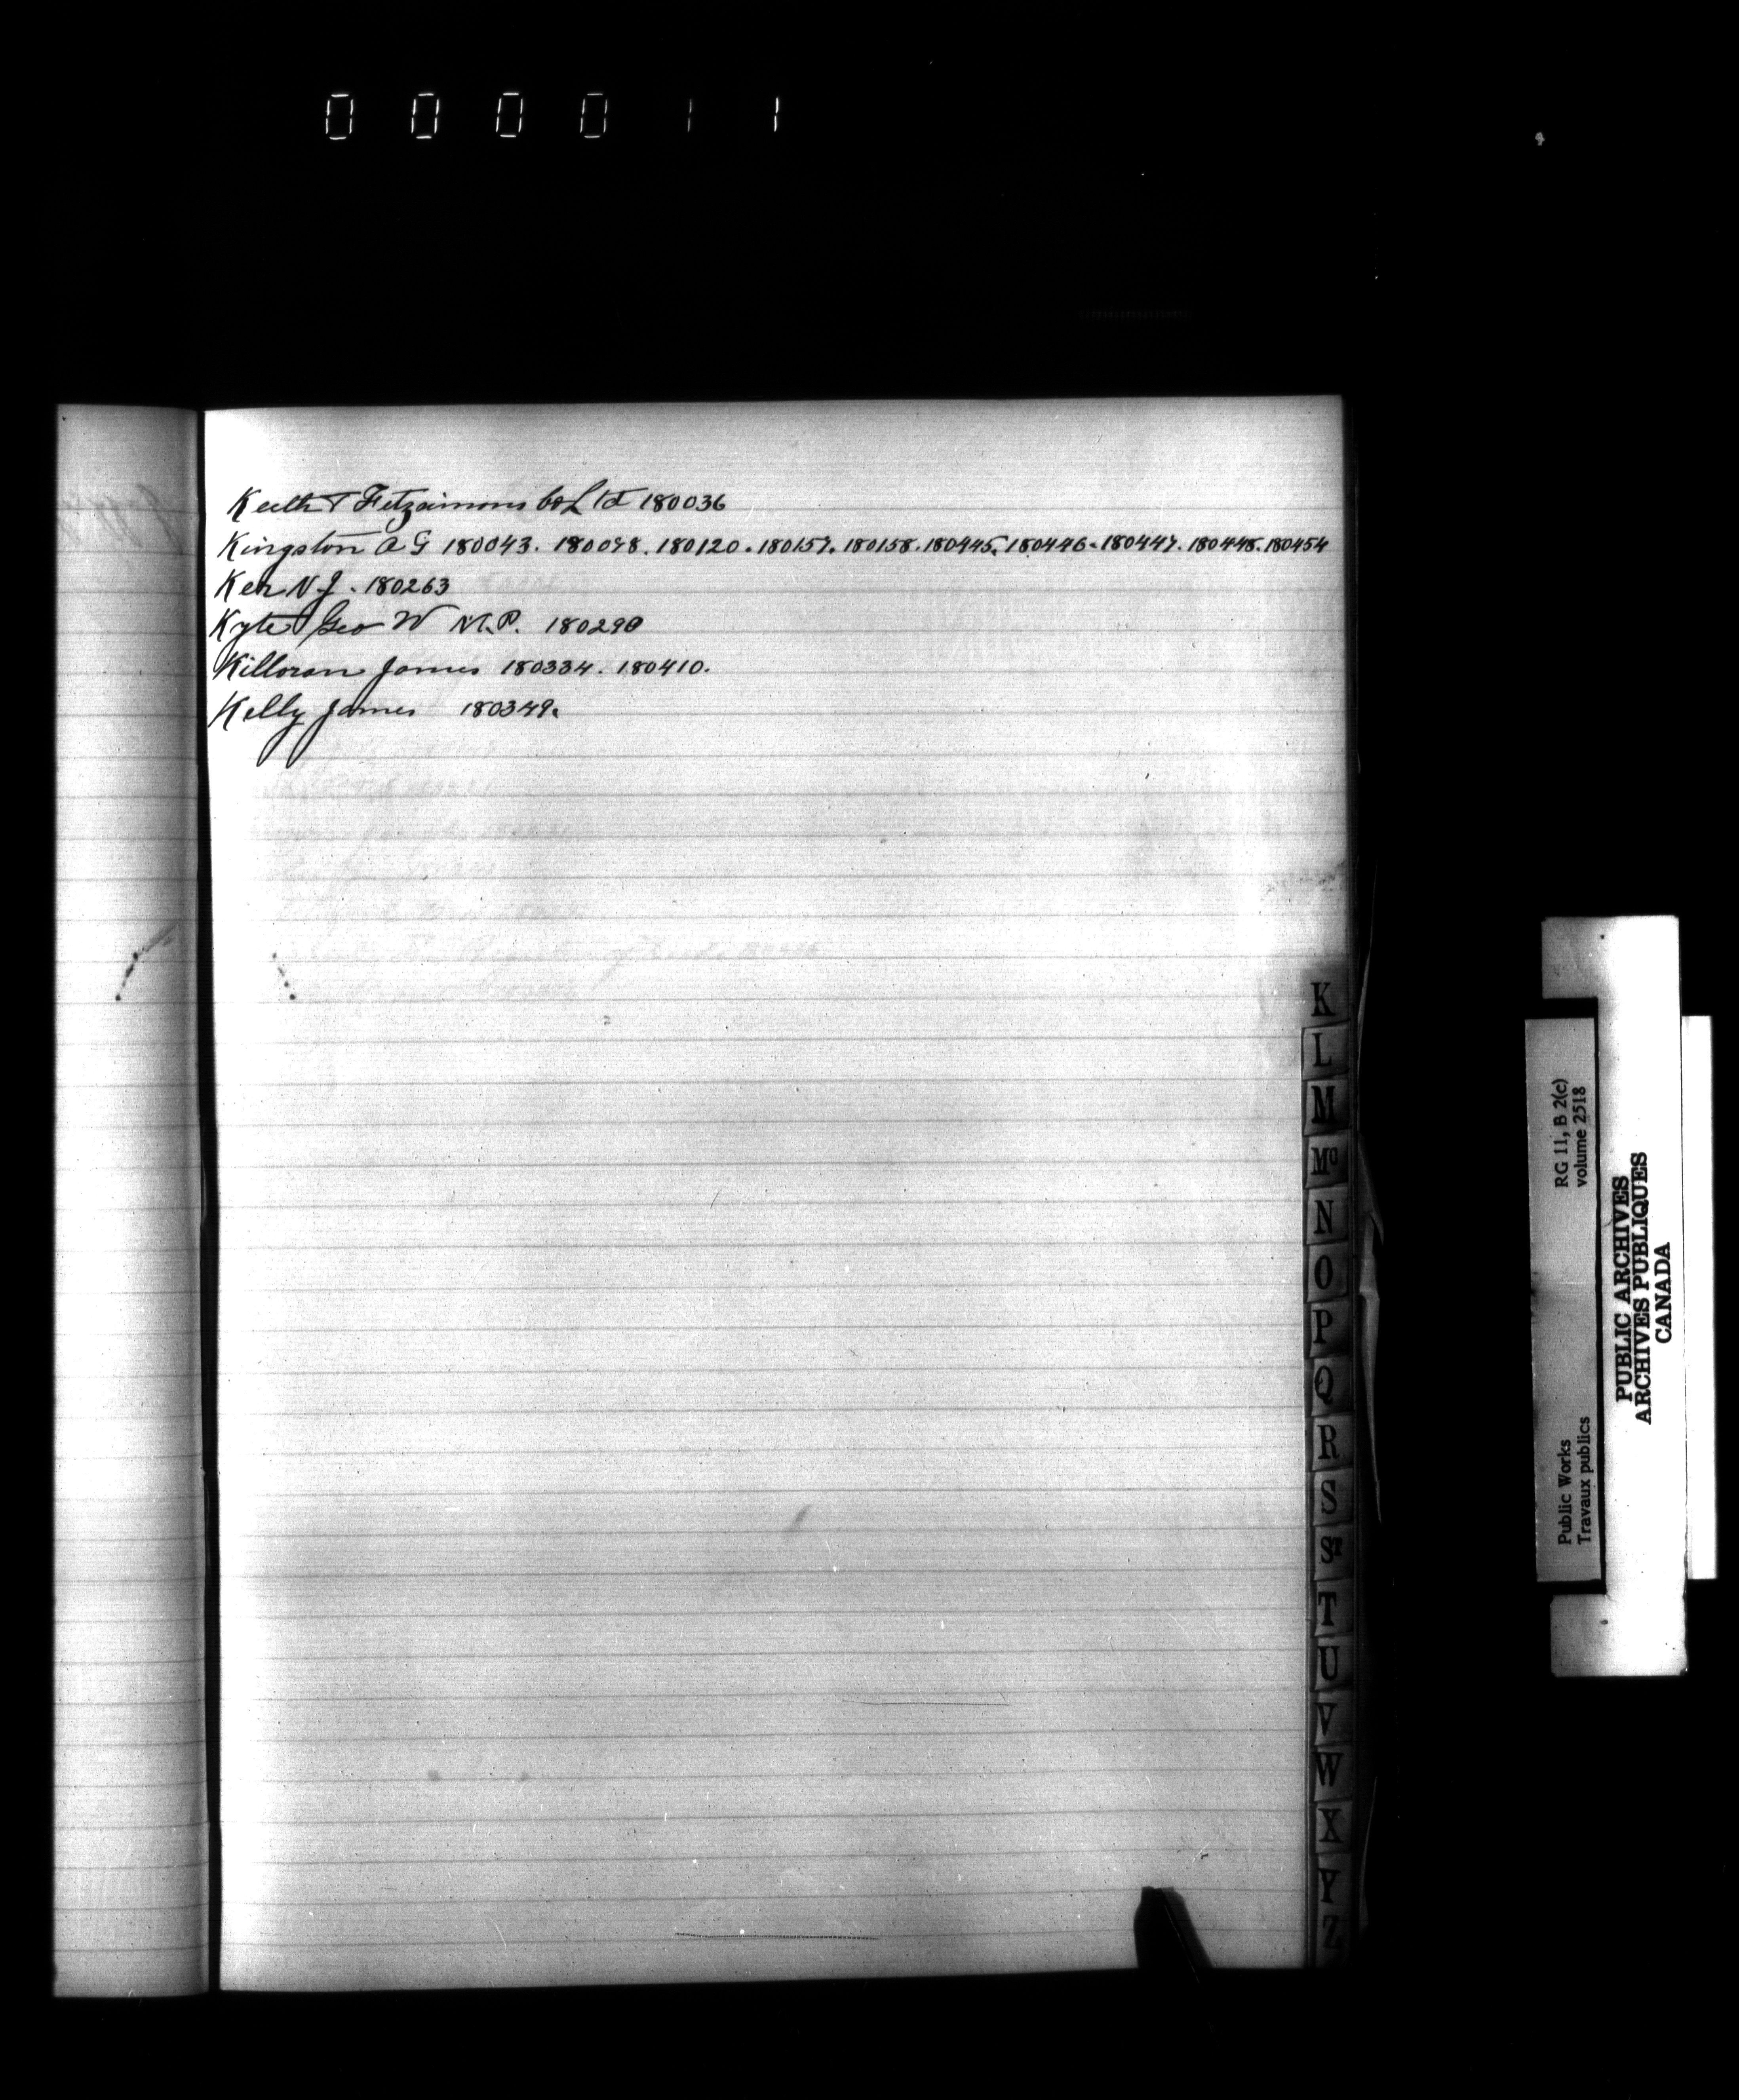 000011
Keith & Fitzsimons Co Ltd 180036
Kingston A G 180043. 180098. 180120. 180157. 180158. 180445. 180446. 180447. 180448. 180454
Ker N J. 180263
Kyte Geo W M.P. 180290
Killoran James 180334. 180410.
Kelly James 180349.
K
L
M
Mc
N
O
P
Q
R
S
St
T
U
V
W
X
Y
Z
RG 11, B 2(c)
volume 2518
Public Works
Travaux publics
PUBLIC ARCHIVES
ARCHIVES PUBLIQUES
CANADA